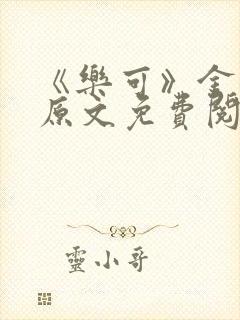 《樂可》全
原文免費閱
靈小哥